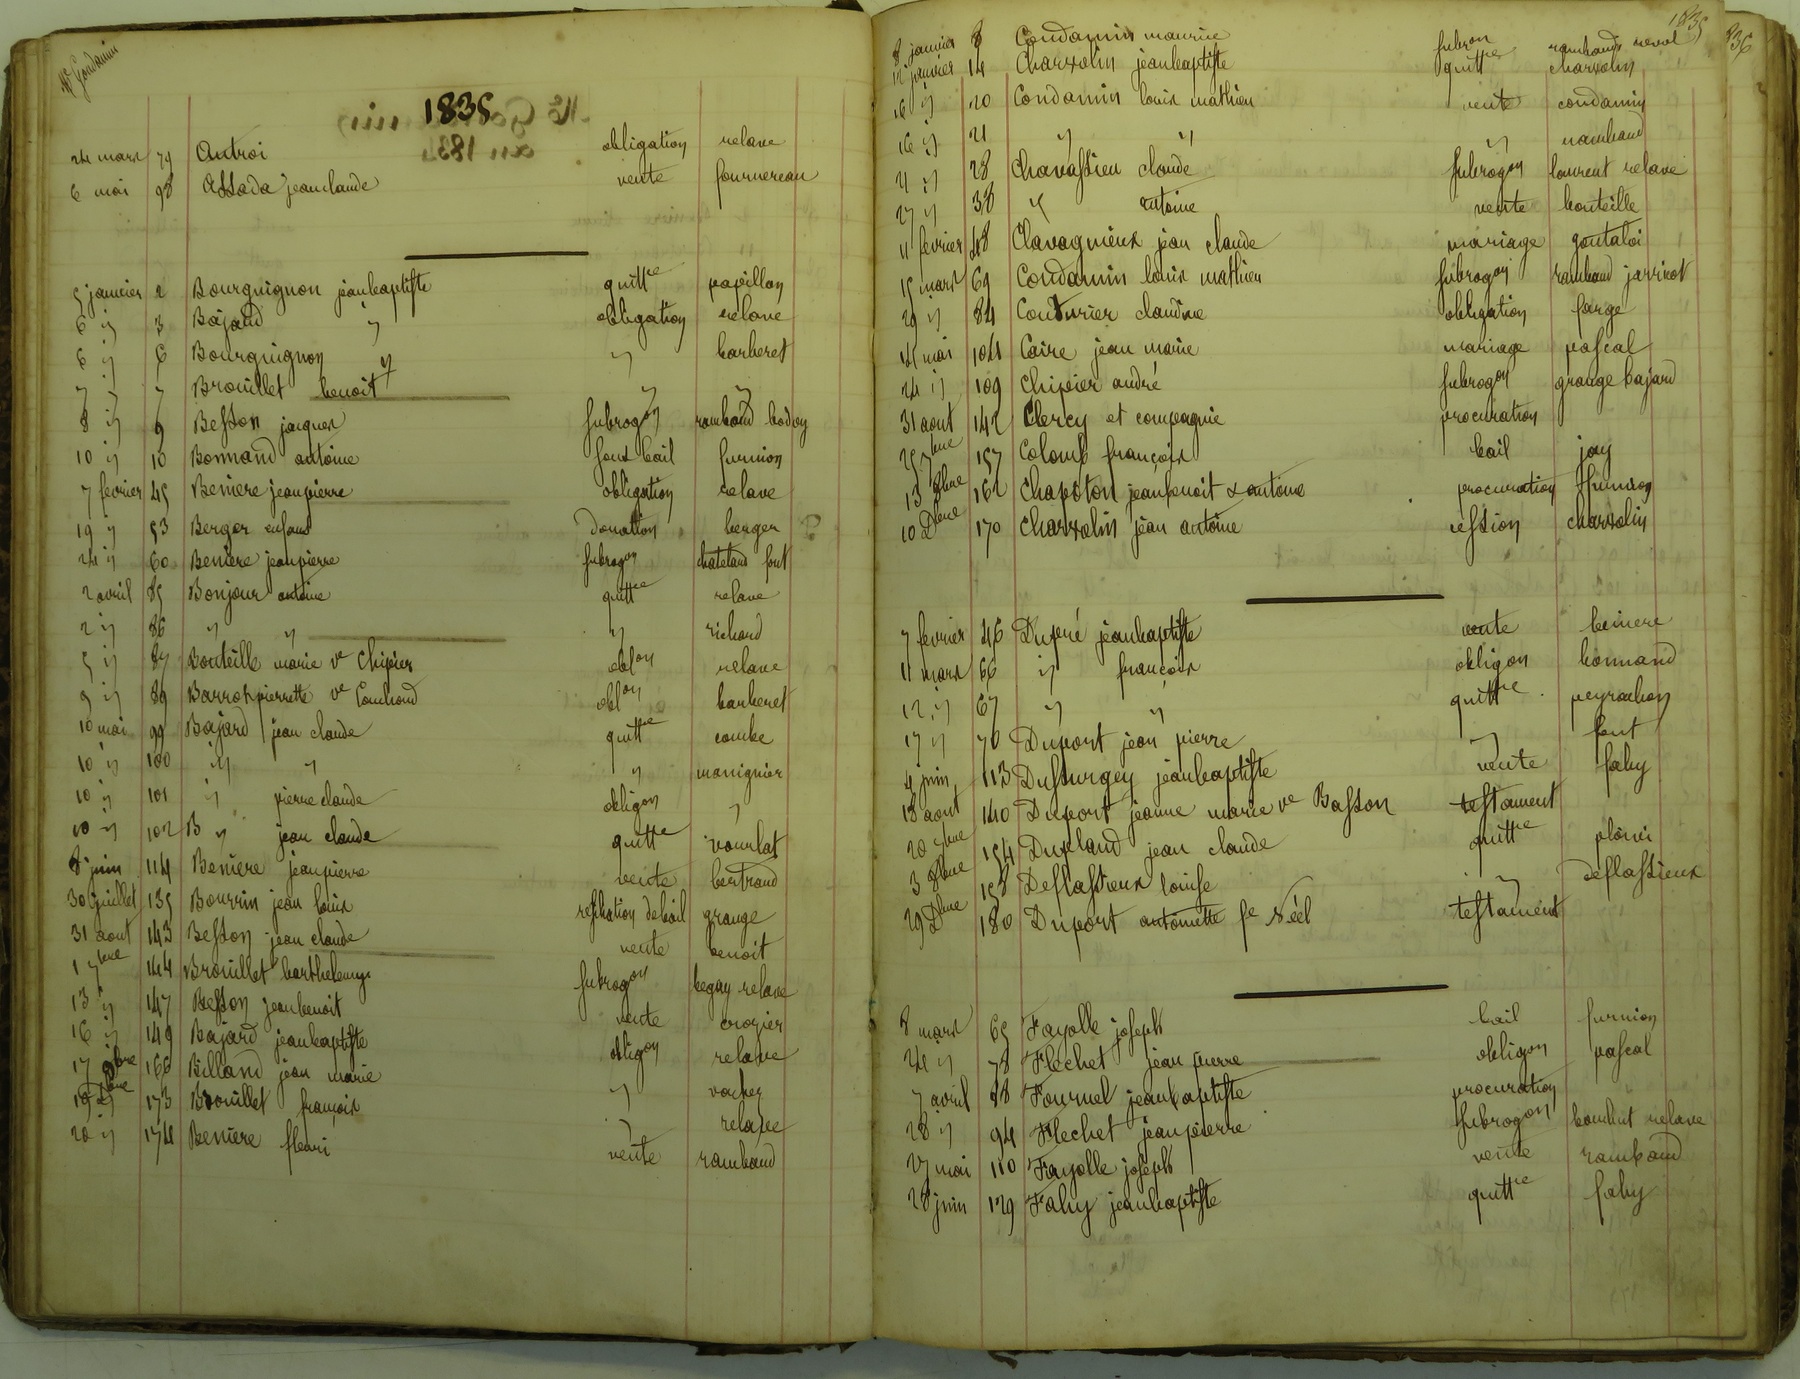 Me Condamin
1835
24 mars 79 Autroi obligation relave
6 mai 98 Assada jeanclaude vente fournereau
5 janvier 2 Bourguignon jeanbaptiste quittce papillon
6 " 3 Bajard " obligation relave
6 " 6 Bourguignon " " barberet
7 " 7 Brouillet benoit " "
8 " 9 Besson jacques subrogon rambaud boday
10 " 10 Bonnand antoine sous bail furnion
7 fevrier 45 Beniere jeanpierre obligation relave
19 " 53 Berger enfans Donation berger
24 " 60 Beniere jeanpierre subrogon chateland font
2 avril 85 Bonjour antoine quittce relave
2 " 86 " " " richard
5 " 87 Bouteille marie ve Chipier oblon relave
9 " 89 Barrot pierrette ve Couchoud oblon barberet
10 mai 99 Bajard jean claude quittce combe
10 " 100 " " " manignier
10 " 101 " pierre claude obligon "
10 " 102 B " jean claude quittce vourlat
8 juin 114 Beniere jeanpierre vente bertrand
30 juillet 135 Bourrin jean louis resiliation de bail grange
31 aout 143 Besson jean claude vente benoit
1 7bre 144 Brouillet barthelemy subrogon begay relave
13 " 147 Besson jeanbenoit vente crozier
16 " 149 Bajard jeanbaptiste obligon relave
17 8bre 166 Billand jean marie " vacher
19 Dbre 173 Brouillet françois " relave
20 " 174 Beniere fleuri vente rambaud
1835
836
8 janvier 8 Condamin maurice subron rambaud revol
12 janvier 14 Charxolin jeanbaptiste quittce charxolin
16 " 20 Condamin louis mathieu vente condamin
16 " 21 " " " rambaud
21 " 28 Chavassieu claude subrogon laurent relave
27 " 38 " antoine vente bouteille
11 fevrier 48 Clavagnieux jean claude mariage goutaloi
15 mars 69 Condamin louis mathieu subrogon rambaud jarricot
29 " 84 Couturier claudine obligation farge
14 mai 104 Caire jean marie mariage pascal
24 " 109 Chipier andré subrogon grange bajard
31 aout 142 Clercy et compagnie procuration
25 7bre 157 Colomb françois bail jay
13 8bre 162 Chapoton jeanbenoit & antoine procuration furnion
10 Dbre 170 Charxolin jean antoine cession charxolin
7 fevrier 46 Dupré jeanbaptiste vente beniere
11 mars 66 " françois obligon bonnand
12 " 67 " " quittce peyrachon
17 " 70 Duport jean pierre " font
4 juin 113 Dussurgey jeanbaptiste vente fahy
18 aout 140 Duport jeanne marie ve Basson testament
20 7bre 154 Dupland jean claude quittce
3 8bre 158 Deflassieux louise " deflassieux
29 Dbre 180 Duport antoinette fe Néél testament
8 mars 65 Fayolle joseph bail furnion
24 " 78 Flechet jean pierre obligon pascal
7 avril 88 Fournel jeanbaptiste procuration
28 " 94 Flechet jeanpierre subrogon relave
27 mai 110 Fayolle joseph vente rambaud
28 juin 129 Fahy jeanbaptiste quittce fahy